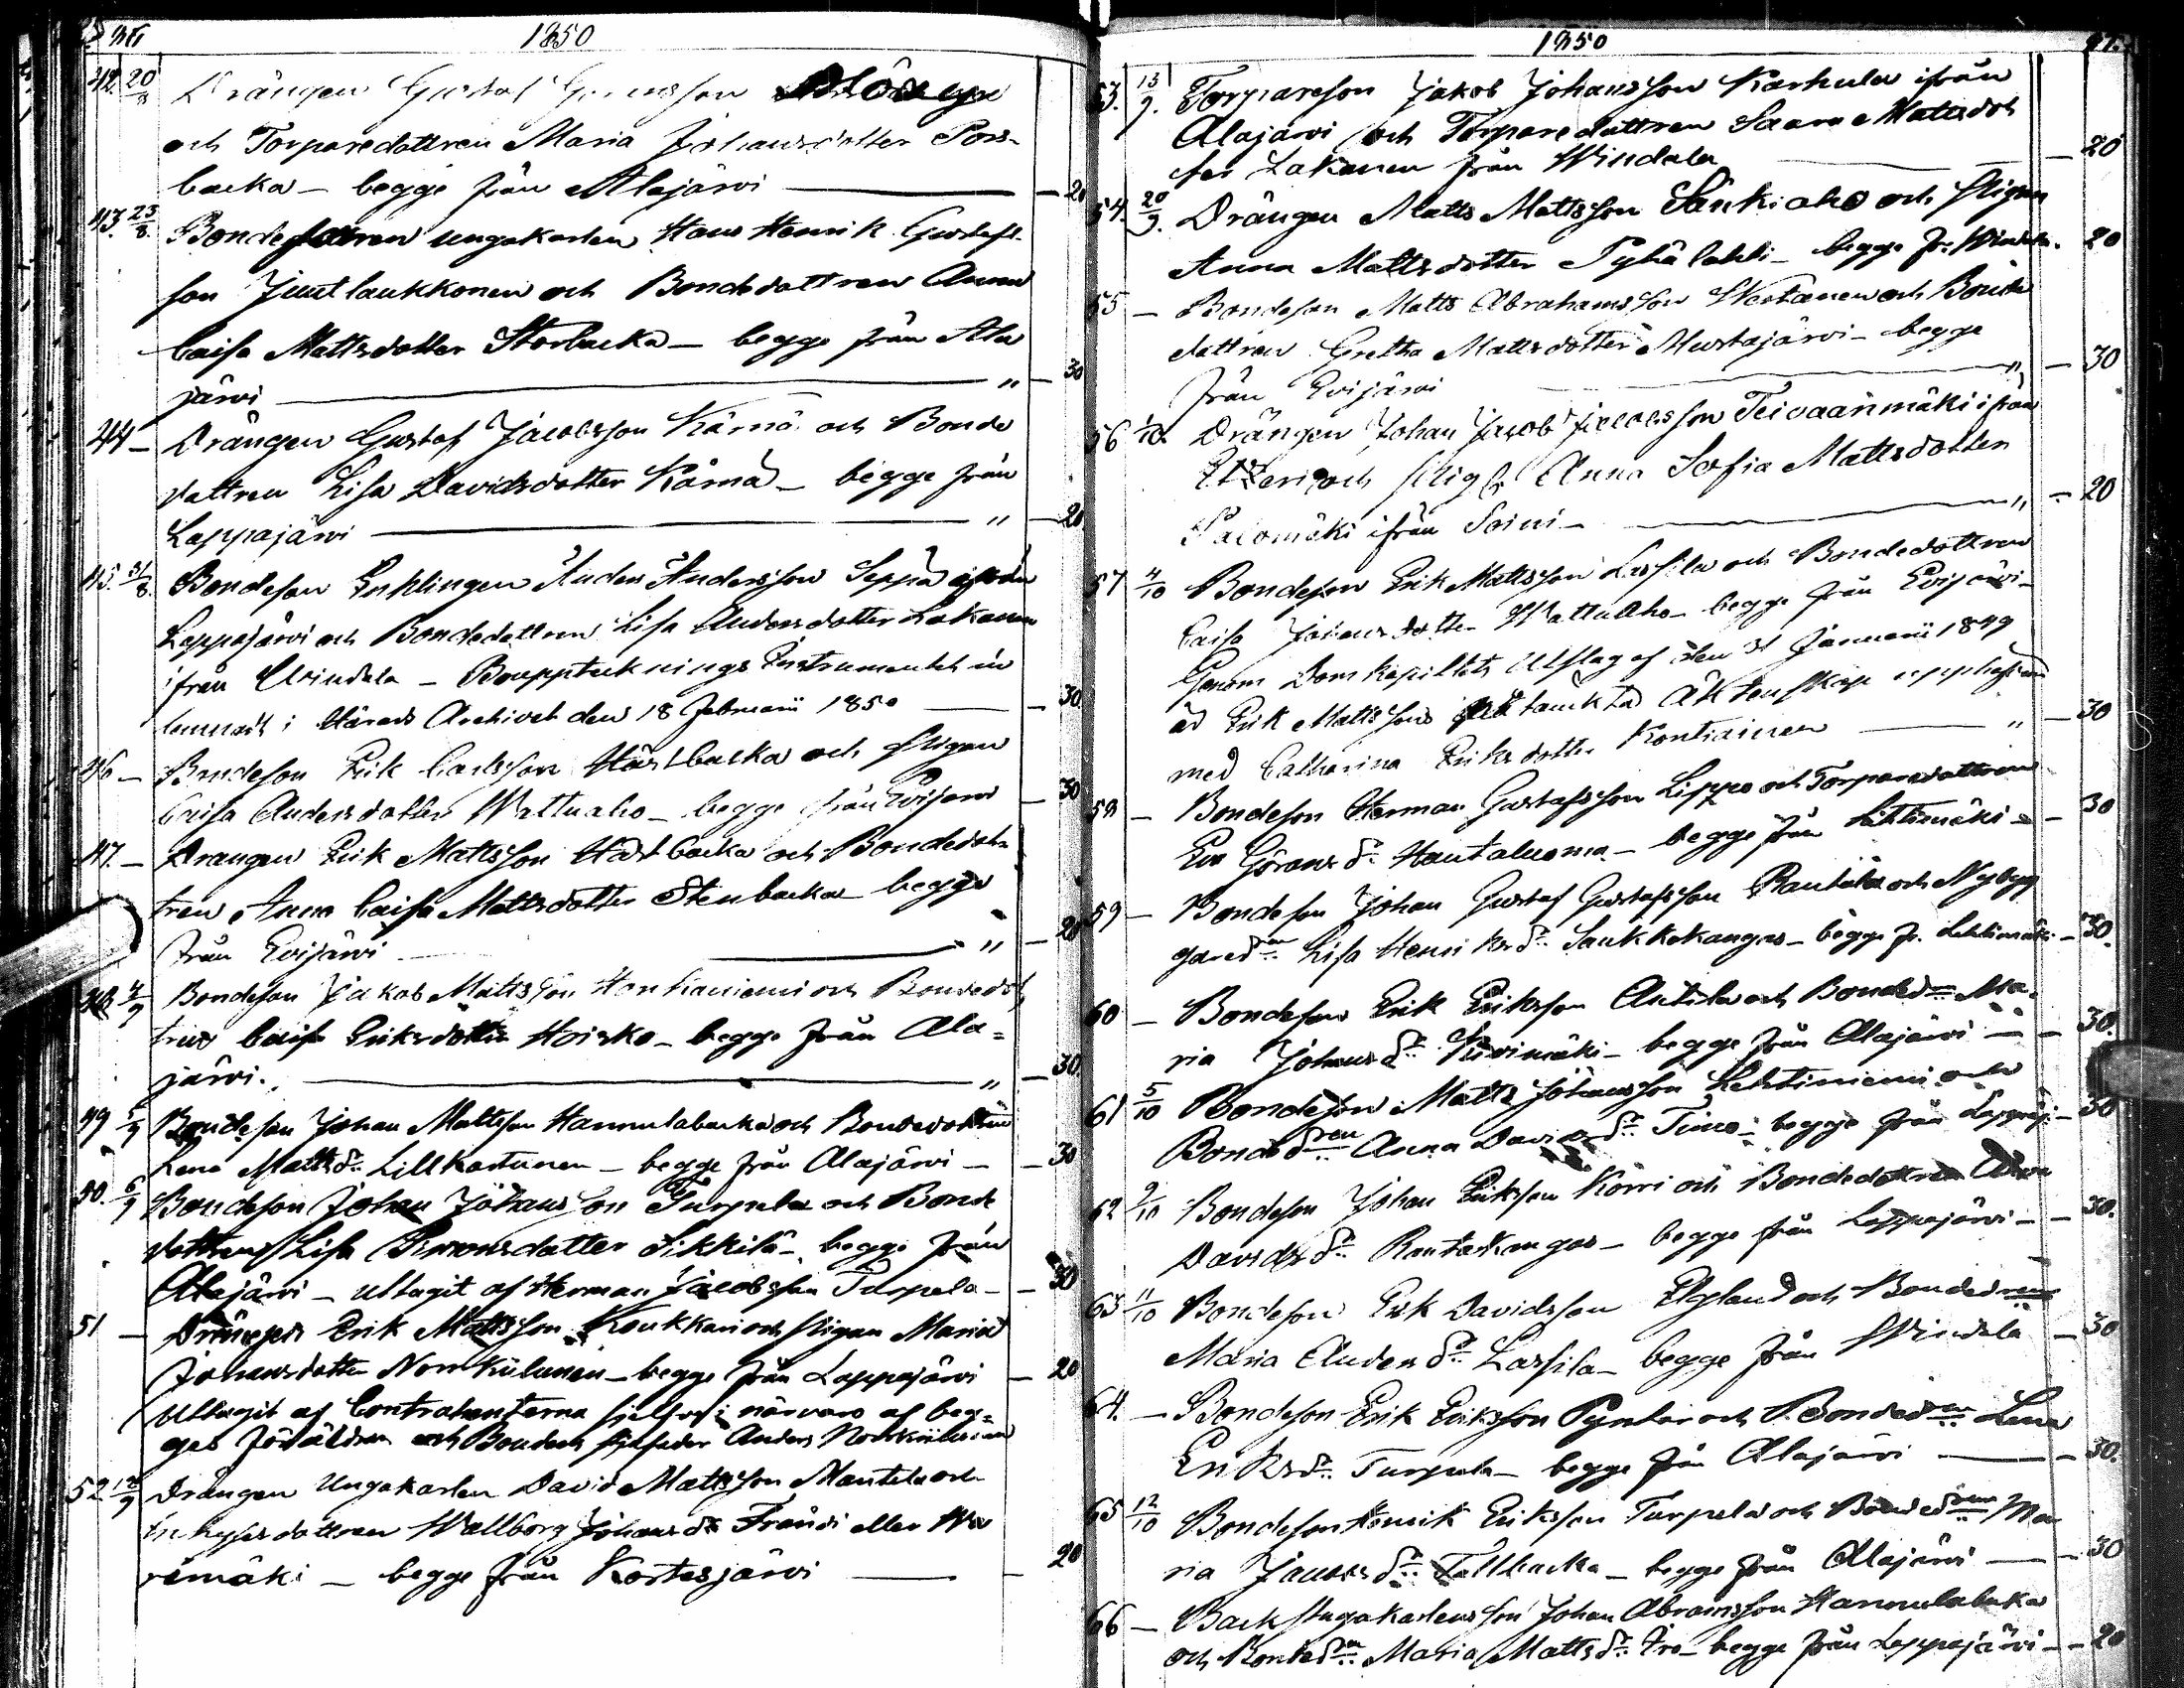 36
1850
42. 20/8 Drängen Gustaf
och Torparedottren Maria Johansdotter Pors-
backa – begge från Alajärvi – 20
43. 23/8. Bondesonen ungakarlen Hans Henrik Gustafs-
son Juutlaukkonen och Bondedottren Anna
Caisa Mattsdotter Storbacka – begge från Ala
järvi " – 30
44 – Drängen Gustaf Jacobsson Kärnä och Bonde
dottren Lisa Davidsdotter Kärnä – begge från
Lappajärvi " – 20
45. 31/8. Bondeson Enklingen Anders Andersson Seppä ifrån
Lappajärvi och Bondedottren Lisa Andersdotter Lakanen
ifrån Windala – Bouppteknings Instrumentet in
lemnadt i Härads Archivet den 18 Februarii 1850 – 30.
46 – Bondeson Erik Carlsson Härtbacka och Pigan
Caisa Andersdotter Wattuaho – begge från Evijärvi – 30
47. – Drängen Erik Mattsson Härtbacka och Bondedot-
tren Anna Caisa Mattsdotter Stenbacka begge
från Evijärvi " – 20
48 4/9 Bondeson Jakob Mattsson Hankaniemi och Bondedot
tren Caisa Eriksdotter Hoisko – begge från Ala=
järvi. " – 30.
49 5/9 Bondeson Johan Mattsson Hannulabacka och Bondedottren
Lena Mattsdr Lillkastunen – begge från Alajärvi – 30
50. 6/9 Bondeson Johan Johansson Turpela och Bonde
dottren Lisa Simonsdotter Sikkilä – begge från
Alajärvi – uttagit af Herman Jacobsson Turpela – 30
51 – Drängen Erik Mattsson Koukkari och Pigan Maria
Johansdotter Norrkiilunen – begge från Lappajärvi – 20
Uttagit af Contrahenterna sjelfve i närvaro af beg=
ges föräldrar och Anders Norrkiilunen
52 12/9 Drängen Ungakarlen David Mattsson Mantila och
Inhysesdottren Wallborg Johansdr Frändi eller
rimäki – begge från Kortesjärvi – 20
1850
37.
53. 13/9. Torpareson Jakob Johansson Karhula ifrån
Alajärvi och Torparedottren Saara Mattsdot
ter Lakanen från Windala – 20
54. 20/9. Drängen Matts Mattsson Sänkiaho och Pigan
Anna Mattsdotter Pyhälahti – begge fr. Windala. 20
55 – Bondeson Matts Abrahamsson Westanen och Bonde
dottren Gretha Mattsdotter Mustajärvi – begge
från Evijärvi " – 30
56 1/10. Drängen Johan Jacob Jacobsson Teivaanmäki ifrån
Etseri och Pig. Anna Sofia Mattsdotter
Salomäki ifrån Soini – " – 20
57 4/10 Bondeson Erik Mattsson Lassila och Bondedottren
Caisa Johansdotter Wattuaho – begge från Evijärvi –
Genom Domkapitlets Utslag af den 31 Januarii 1849
är Erik Mattssons tänkta Äktenskap upphäfvet
med Catharina Eriksdotter Kontiainen " – 30
58 – Bondeson Herman Gustafsson Lippo och Torparedottren
Eva Göransdr Hautaluoma – begge från Lehtimäki – 30
59 – Bondeson Johan Gustaf Gustafsson Rantala och Nybyg
garedren Lisa Henriksdr Saukkokangas – begge fr. Lehtimäki – 30.
60 – Bondeson Erik Eriksson Antila och Bondedren Ma-
ria Johansdr Kivimäki – begge från Alajärvi – 30.
61 5/10 Bondeson Matts Johansson Lehtiniemi och
Bondedren Anna Davidsdr Timo – begge från Lappaj. – 30
62 9/10 Bondeson Johan Eriksson Körri och Bondedottren Anna
Davidsdr Rantakangas – begge från Lappajärvi – 30.
63 11/10 Bondeson Erik Davidsson Elgland och Bondedren
Maria Andersdr Lassila – begge från Windala – 30
64. – Bondeson Erik Eriksson Pynttäri och Bondedren Lena
Eriksdr Turpela – begge från Alajärvi – 30.
65 12/10 Bondeson Henrik Eriksson Turpela och Bondedren Ma
ria Jacobsdr Tallbacka – begge från Alajärvi – 30
66 – Backstugakarlensson Johan Abramsson Hannulabacka
och Bondedren Maria Mattsdr Iro – begge från Lappajärvi – 20